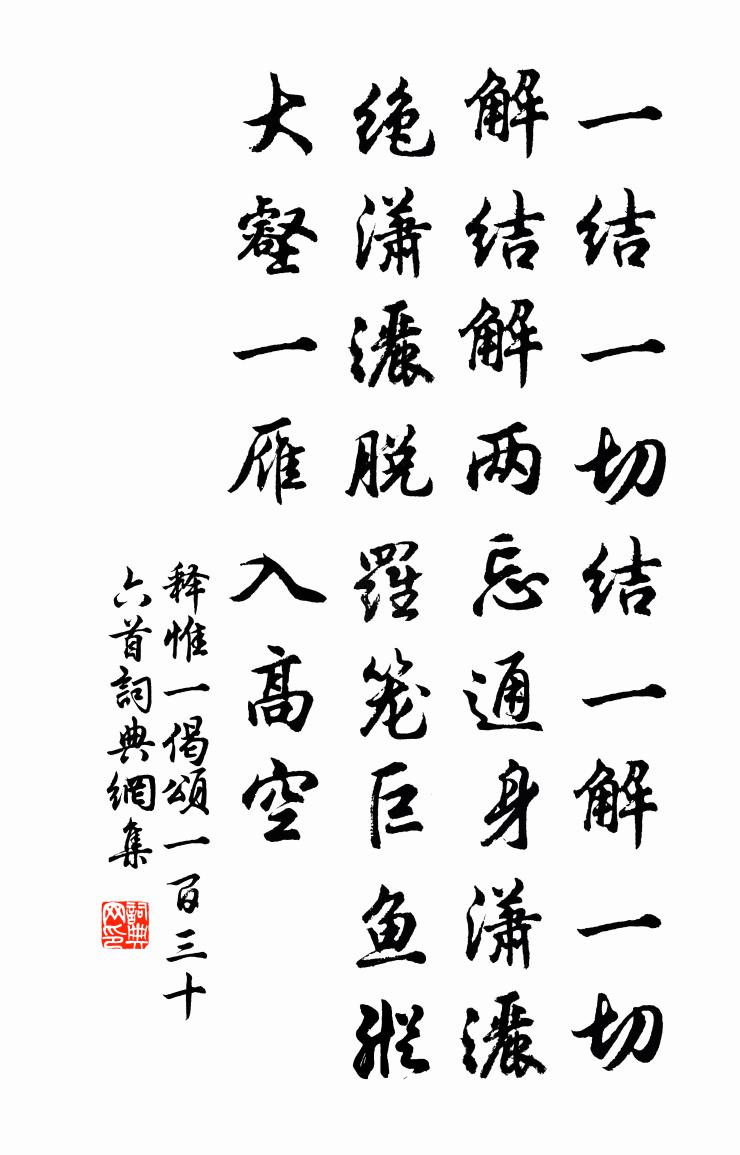 一结一切结一解一切
解结解两忘通身潇灑
绝潇灑脱羅笼巨鱼縱
大壑一雁入高空
释惟一偈頌一百三十
六首詞典網集
詞典
网印